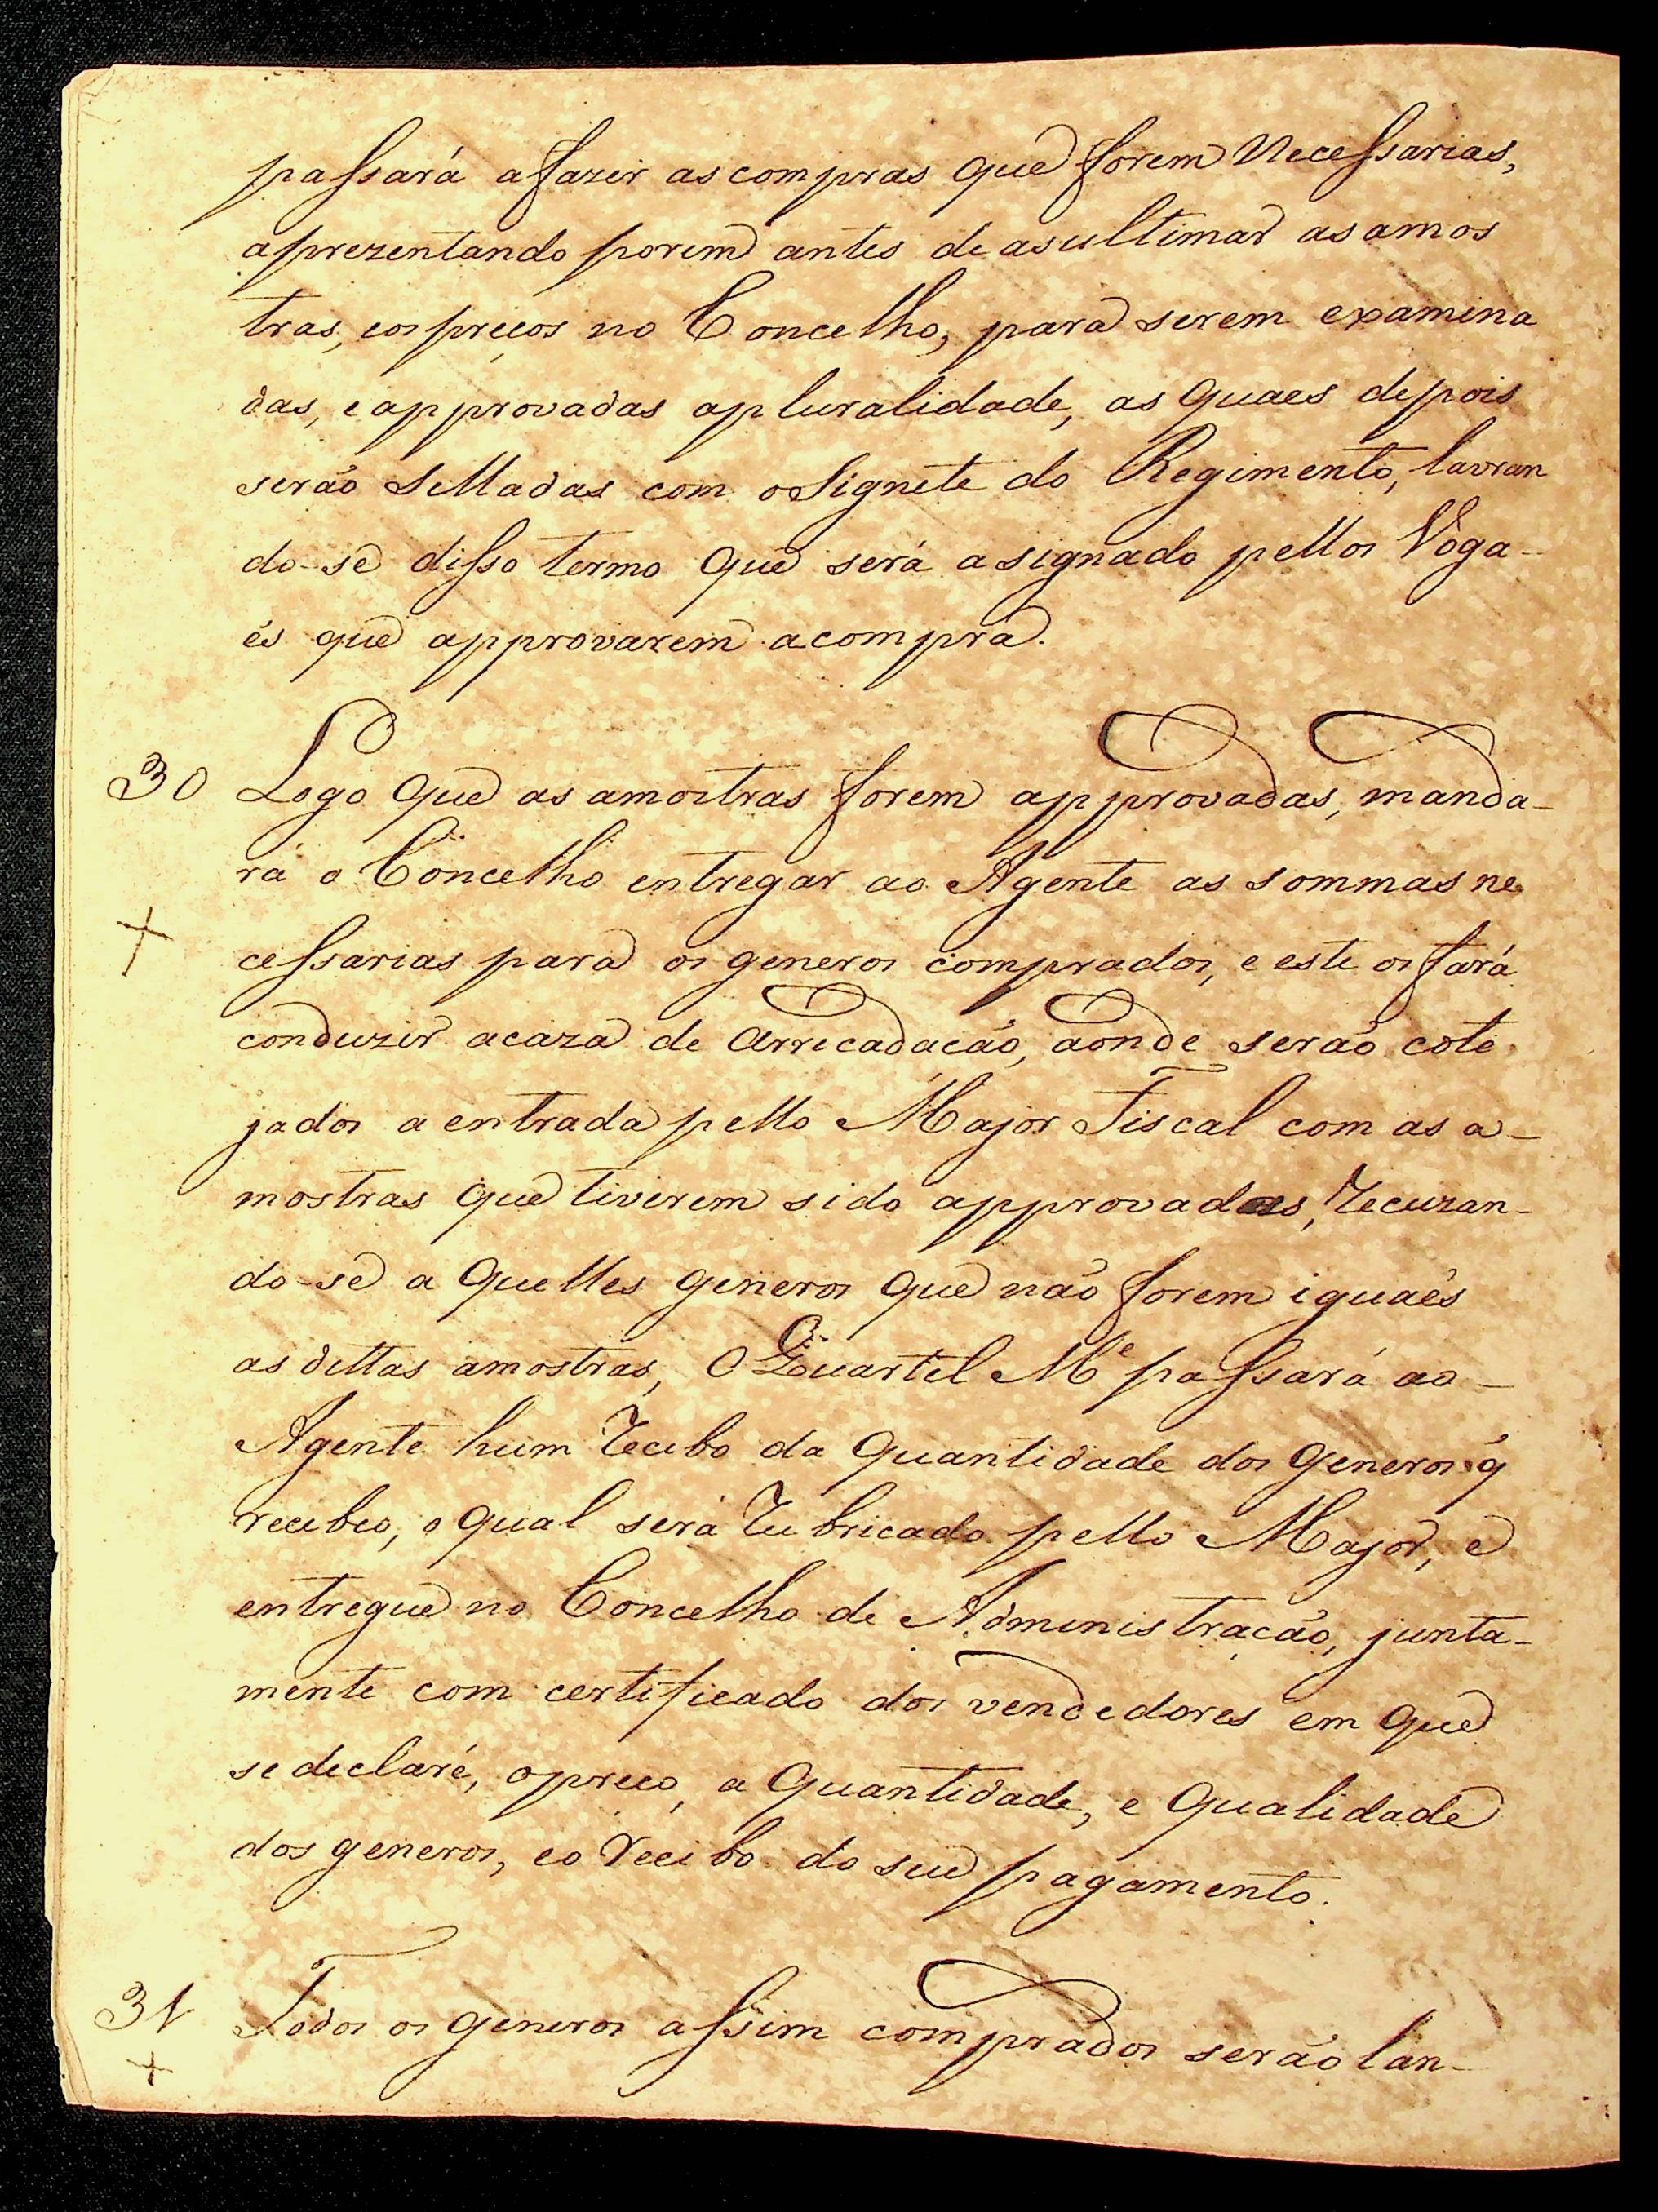 passará afazer as compras que forem Necessarias,
aprezentando porem antes de asultimar as amos
tras, eos preços no Concelho, para serem examina
das, e approvadas apluralidade, as quaes depois
serão Selladas com oSignete do Regimento, lavran
do-se disso termo que será asignado pellos Voga-
es que approvarem acompra.
30 Logo que as amostras forem approvadas, manda-
rá o Concelho entregar ao Agente as sommas ne
+
cessarias para os generos comprados, e este os fará
conduzir acaza de Arrecadação, aonde serão cote
jados a entrada pello Major Fiscal com as a-
mostras que tiverem sido approvadas, recuzan-
do-se a quelles generos que não forem iguaes
as dittas amostras, O Quartel Me passará ao-
Agente hum recibo da quantidade dos generos q̃
recebeo, o qual será rubricado pello Major, e
entregue no Concelho de Administração, junta-
mente com certificado dos vendedores em que
se declaré, opreço, a quantidade, e qualidade
dos generos, eo recibo do seu pagamento.
31 Todos os generos assim comprados serão lan-
+